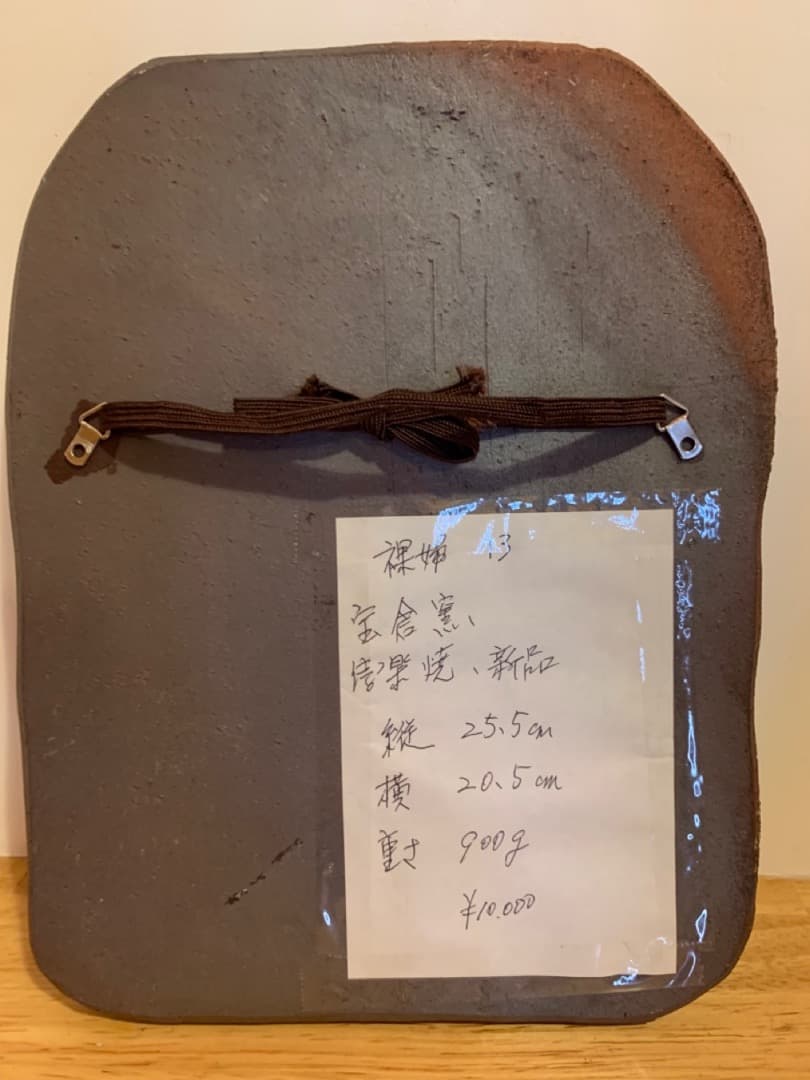 裸婦 13
宝倉窯、
信楽焼、新品
縦 25.5cm
横 20.5cm
重さ 900g
¥10.000